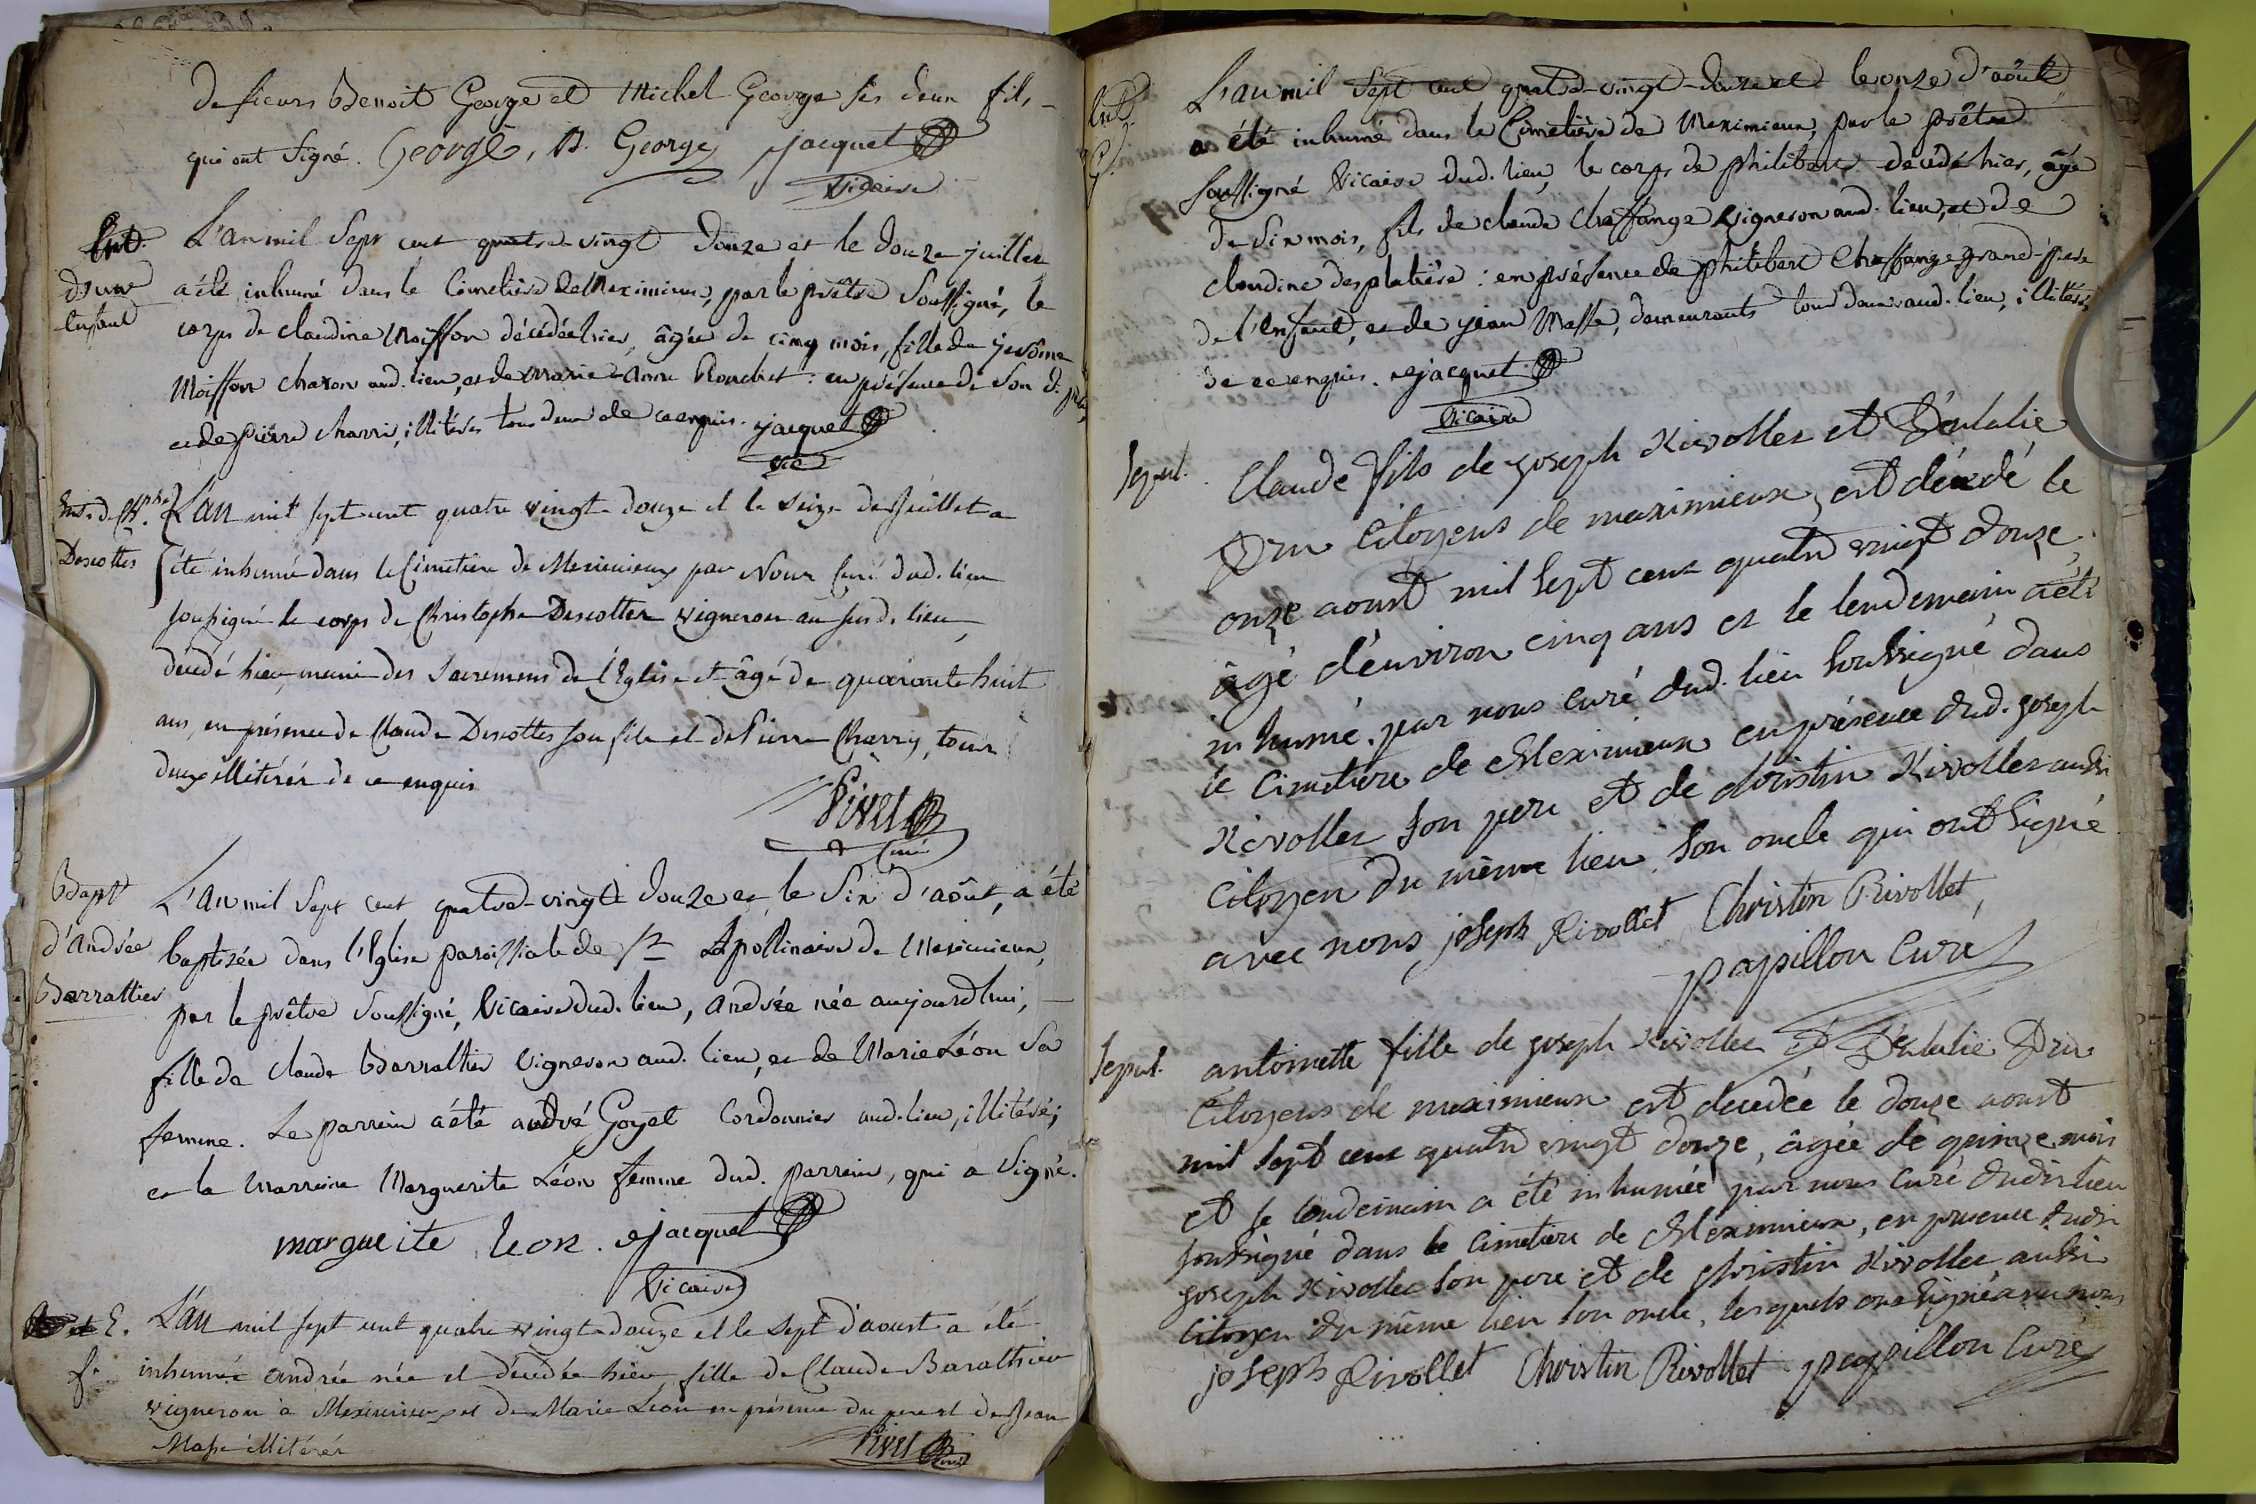 de sieurs Benoit George et Michel George ses deux fils
qui ont signé. George, B. George jacquet
Vicaire
Ent.
d'une
enfant
L'an mil sept cent quatre-vingt douze et le douze juillet
a été inhumé dans le Cimetière de Meximieux, par le prêtre soussigné, le
corps de claudine Moiffon décédée hier, âgée de cinq mois, fille de jerôme
Moiffon charon aud. lieu, et de marie-anne : en présence de son d. père
et de pierre charri, illitérés tous deux de ce enquis. jacquet
vic
Ent. de Chphe
Descottes
L'an mil sept cent quatre vingt-douze et le seize de Juillet a
été inhumé dans le Cimetiere de Meximieux par Nous Curé dud. lieu
soussigné le corps de Christophe Descottes vigneron au susd. lieu
décédé hier, muni des sacremens de l'Eglise et âgé de quarante huit
ans, en présence de Claude Descottes son fils et de Pierre Charry, tous
deux illitérés de ce enquis
Pivet
Curé
Bapt
d'andrée
Barrallier
L'an mil sept cent quatre-vingt douze et le six d'août, a été
baptisée dans l'Eglise paroissiale de St Apollinaire de Meximieux,
par le prêtre soussigné, Vicaire dud. lieu, andrée née aujourdhui,
fille de claude Barrallier vigneron aud. lieu, et de Marie Léon sa
femme. Le parrein a été andré Goyet cordonnier aud. lieu, illitéré;
et la marreine Marguerite Léon femme dud. parrein, qui a signé.
marguerite leon. jacquet
Vicaire
et E.
f.
L'an mil sept cent quatre vingt-douze et le sept d'aoust a été
inhumée andrée née et décédée hier fille de Claude Baralhier
vigneron à Meximieux et de Marie Leon en présence du pere et de Jean
Masse illitérés
Pivet
Curé
Ent.
L'an mil sept cent quatre-vingt-douze et le onze d'août,
a été inhumé dans le Cimetière de Meximieux, par le prêtre
soussigné Vicaire dud. lieu, le corps de philibert décédé hier, âgé
de six mois, fils de claude Chaffange vigneron aud. lieu, et de
claudine desplatière : en présence de philibert Chaffange grand-père
de l'enfant, et de jean Masse, demeurants tous deux aud. lieu, illitérés
de ce enquis. jacquet
Vicaire
Sepul.
Claude fils de joseph Rivollet et d'Eulalie
Dru Citoyens de meximieux, est décédé le
onze aoust mil sept cent quatre vingt douze,
âgé d'environ cinq ans et le lendemain a été
inhumé par nous curé dud. lieu soussigné dans
le Cimetiere de Meximieux en présence dud. joseph
Rivollet son pere et de christin Rivollet aussi
Citoyen du même lieu son oncle qui ont signé
avec nous joseph Rivollet Christin Rivollet,
papillon Curé
Sepul.
antoinette fille de joseph Rivollet et d'Eulalie Dru
Citoyens de meximieux est decedée le douze aoust
mil sept cent quatre vingt douze, âgée de quinze mois
et le lendemain a été inhumée par nous Curé dudit lieu
soussigné dans le Cimetiere de Meximieux, en presence dudit
joseph Rivollet son pere et de christin Rivollet aussi
Citoyen du même lieu son oncle, lesquels ont signé avec nous
joseph Rivollet Christin Rivollet papillon Curé